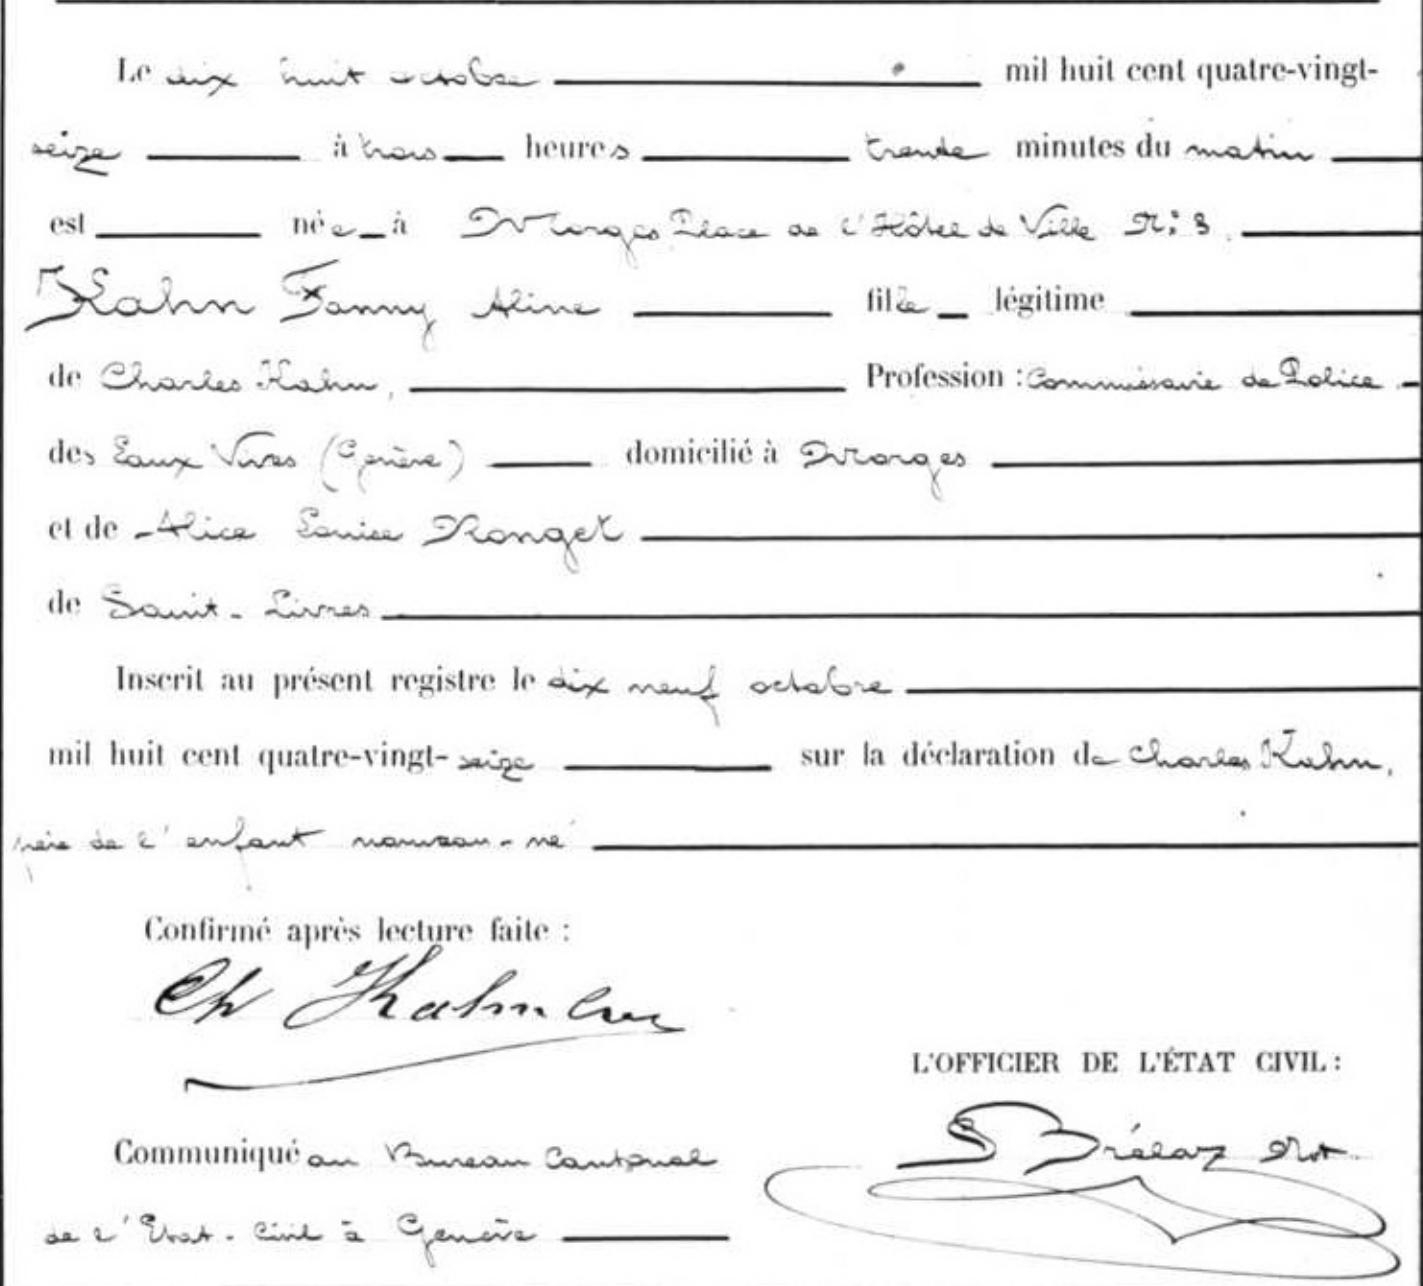 Le dix huit octobre mil huit cent quatre-vingt-
seize à trois heures trente minutes du matin
est née à Morges Place de l'Hôtel de Ville N° 3.
Kahn Fanny Aline fille légitime
de Charles Kahn, Profession : Commissaire de Police
des Eaux Vives (Genève) domicilié à Morges
et de Alice Louise Monget
de Saint-Livres
Inscrit au présent registre le dix neuf octobre
mil huit cent quatre-vingt-seize sur la déclaration de Charles Kahn,
père de l'enfant nouveau-né
Confirmé après lecture faite :
Ch Kahn
L'OFFICIER DE L'ÉTAT CIVIL :
Communiqué au Bureau Cantonal
S Brélaz Not.
de l'Etat-Civil à Genève